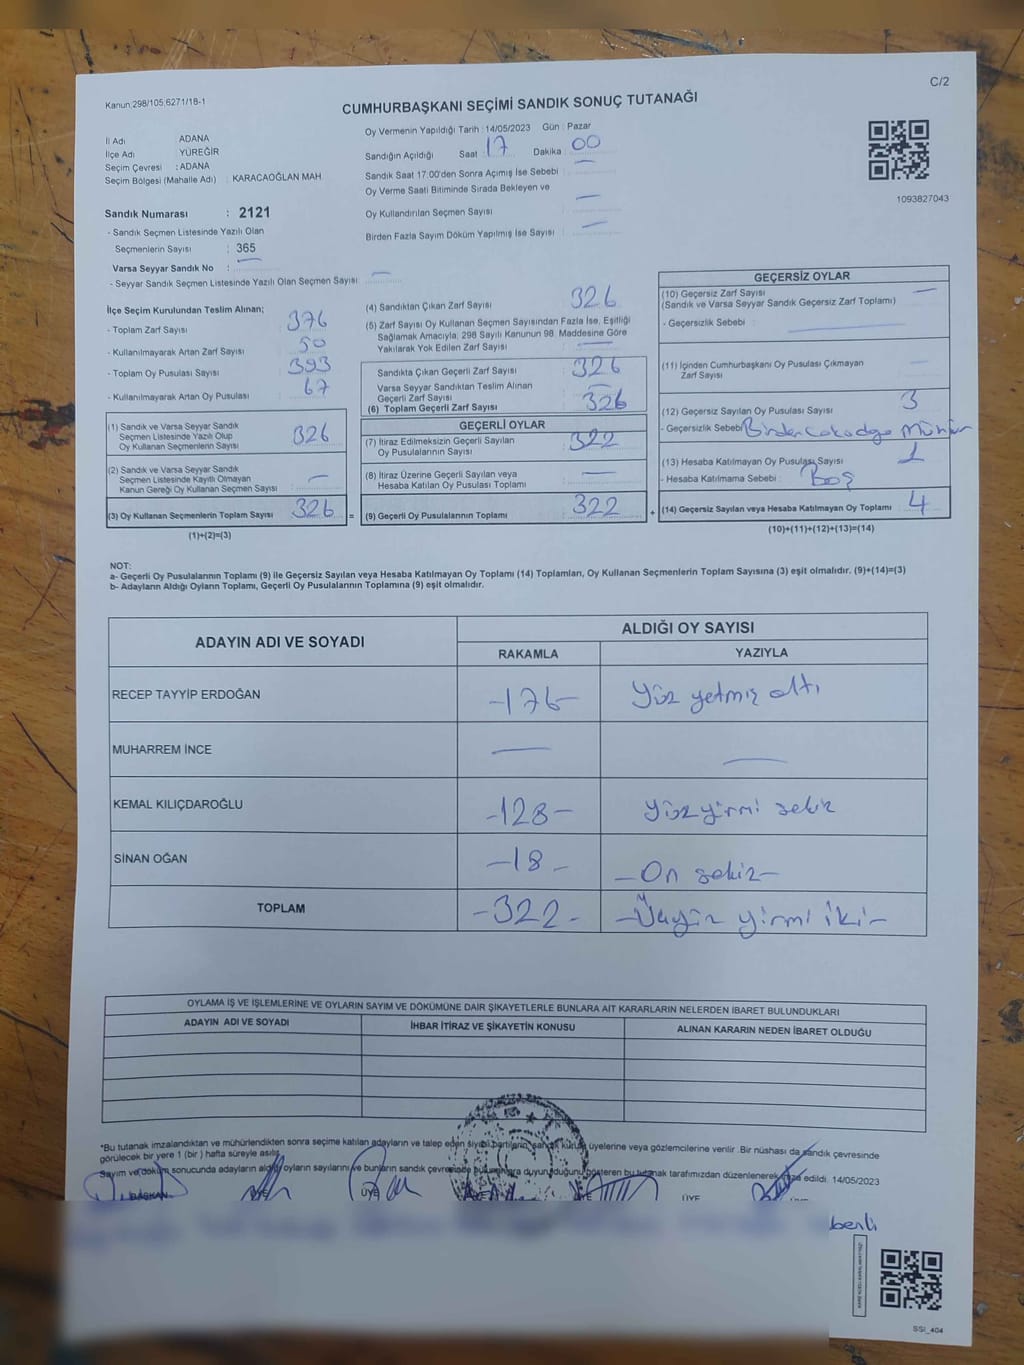 C/2
Kanun;298/105;6271/18-1
CUMHURBAŞKANI SEÇİMİ SANDIK SONUÇ TUTANAĞI
İl Adı ADANA
İlçe Adı YÜREĞİR
Seçim Çevresi : ADANA
Seçim Bölgesi (Mahalle Adı) : KARACAOĞLAN MAH.
Oy Vermenin Yapıldığı Tarih : 14/05/2023 Gün : Pazar
Sandığın Açıldığı Saat 17 Dakika 00
Sandık Saat 17:00'den Sonra Açımış İse Sebebi :
Oy Verme Saati Bitiminde Sırada Bekleyen ve
Oy Kullandırılan Seçmen Sayısı :
Birden Fazla Sayım Döküm Yapılmış İse Sayısı :
1093827043
Sandık Numarası : 2121
- Sandık Seçmen Listesinde Yazılı Olan
Seçmenlerin Sayısı : 365
Varsa Seyyar Sandık No :
- Seyyar Sandık Seçmen Listesinde Yazılı Olan Seçmen Sayısı :
İlçe Seçim Kurulundan Teslim Alınan;
- Toplam Zarf Sayısı 376
- Kullanılmayarak Artan Zarf Sayısı 50
- Toplam Oy Pusulası Sayısı 393
- Kullanılmayarak Artan Oy Pusulası 67
(1) Sandık ve Varsa Seyyar Sandık
Seçmen Listesinde Yazılı Olup
Oy Kullanan Seçmenlerin Sayısı 326
(2) Sandık ve Varsa Seyyar Sandık
Seçmen Listesinde Kayıtlı Olmayan
Kanun Gereği Oy Kullanan Seçmen Sayısı
(3) Oy Kullanan Seçmenlerin Toplam Sayısı 326 =
(1)+(2)=(3)
(4) Sandıktan Çıkan Zarf Sayısı 326
(5) Zarf Sayısı Oy Kullanan Seçmen Sayısından Fazla İse, Eşitliği
Sağlamak Amacıyla; 298 Sayılı Kanunun 98. Maddesine Göre
Yakılarak Yok Edilen Zarf Sayısı
Sandıkta Çıkan Geçerli Zarf Sayısı 326
Varsa Seyyar Sandıktan Teslim Alınan
Geçerli Zarf Sayısı
(6) Toplam Geçerli Zarf Sayısı 326
GEÇERLİ OYLAR
(7) İtiraz Edilmeksizin Geçerli Sayılan
Oy Pusulalarının Sayısı 322
(8) İtiraz Üzerine Geçerli Sayılan veya
Hesaba Katılan Oy Pusulası Toplamı
(9) Geçerli Oy Pusulalarının Toplamı 322 +
GEÇERSİZ OYLAR
(10) Geçersiz Zarf Sayısı
(Sandık ve Varsa Seyyar Sandık Geçersiz Zarf Toplamı)
- Geçersizlik Sebebi :
(11) İçinden Cumhurbaşkanı Oy Pusulası Çıkmayan
Zarf Sayısı
(12) Geçersiz Sayılan Oy Pusulası Sayısı 3
- Geçersizlik Sebebi
(13) Hesaba Katılmayan Oy Pusulası Sayısı 1
- Hesaba Katılmama Sebebi : Boş
(14) Geçersiz Sayılan veya Hesaba Katılmayan Oy Toplamı 4
(10)+(11)+(12)+(13)=(14)
NOT:
a- Geçerli Oy Pusulalarının Toplamı (9) ile Geçersiz Sayılan veya Hesaba Katılmayan Oy Toplamı (14) Toplamları, Oy Kullanan Seçmenlerin Toplam Sayısına (3) eşit olmalıdır. (9)+(14)=(3)
b- Adayların Aldığı Oyların Toplamı, Geçerli Oy Pusulalarının Toplamına (9) eşit olmalıdır.
ADAYIN ADI VE SOYADI ALDIĞI OY SAYISI
RAKAMLA YAZIYLA
RECEP TAYYİP ERDOĞAN -176- Yüz yetmiş altı
MUHARREM İNCE
KEMAL KILIÇDAROĞLU -128- Yüz yirmi sekiz
SİNAN OĞAN -18- -On sekiz-
TOPLAM -322- -Üçyüz yirmi iki-
OYLAMA İŞ VE İŞLEMLERİNE VE OYLARIN SAYIM VE DÖKÜMÜNE DAİR ŞİKAYETLERLE BUNLARA AİT KARARLARIN NELERDEN İBARET BULUNDUKLARI
ADAYIN ADI VE SOYADI İHBAR İTİRAZ VE ŞİKAYETİN KONUSU ALINAN KARARIN NEDEN İBARET OLDUĞU
*Bu tutanak imzalandıktan ve mühürlendikten sonra seçime katılan adayların ve talep eden siyasi partilerin, sandık kurulu üyelerine veya gözlemcilerine verilir. Bir nüshası da sandık çevresinde
görülecek bir yere 1 (bir) hafta süreyle asılır.
Sayım ve döküm sonucunda adayların aldığı oyların sayılarını ve bunların sandık çevresinde duyurulduğunu gösteren bu tutanak tarafımızdan düzenlenerek imza edildi. 14/05/2023
BAŞKAN ÜYE ÜYE ÜYE
SSI_404